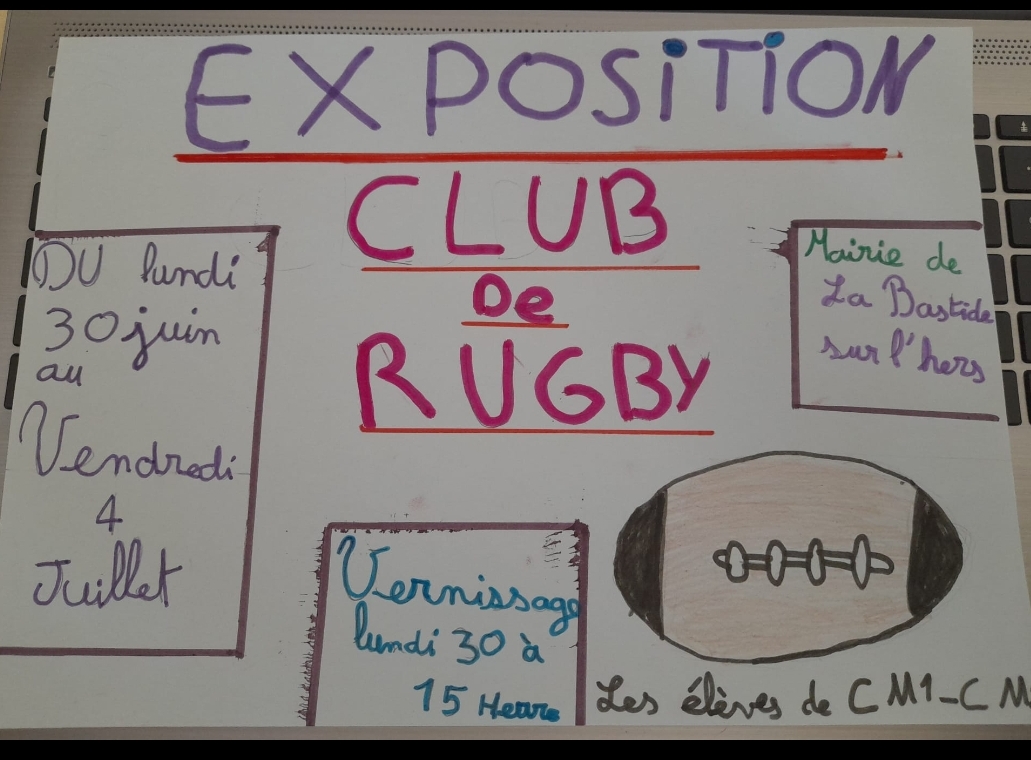 EXPOSITION
CLUB
De
RUGBY
DU lundi
30 juin
au
Vendredi
4
Juillet
Mairie de
La Bastide
sur l'hers
Vernissage
lundi 30 à
15 Heure
Les élèves de CM1-CM